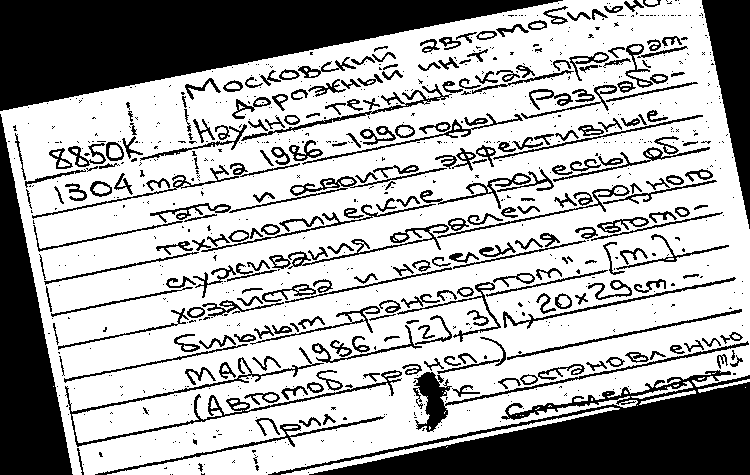 Московский автомобильно-
дорожный ин-т.
8850К Научно-техническая програм-
1304 ма на 1986-1990 годы „Разрабо-
тать и освоить эффективные
технологические процессы об-
служивания отраслей народного
хозяйства и населения автомо-
бильным транспортом". - [М.]:
МАДИ, 1986. - [2], 3 л.; 20x29 см. -
(Автомоб. трансп.).
Прил. к постановлению
См. след. карт.